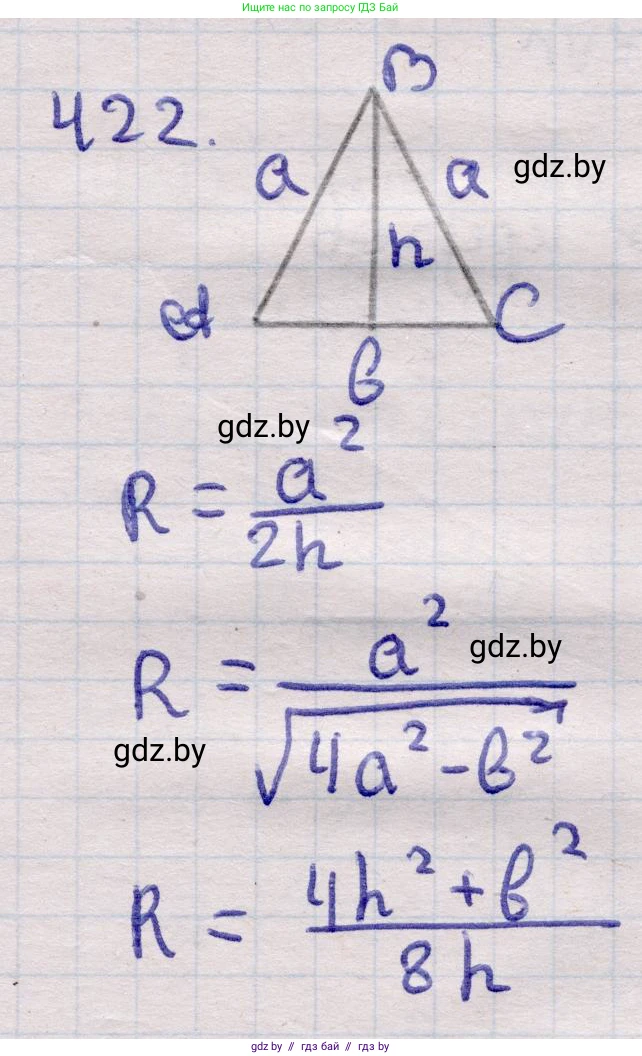 Ищите нас по запросу ГДЗ Бай
422.
B
a
a
gdz.by
h
A
C
b
gdz.by
R = a²/2h
R = a²/√(4a² - b²)
gdz.by
gdz.by
R = (4h² + b²)/8h
gdz.by // гдз бай // гдз by